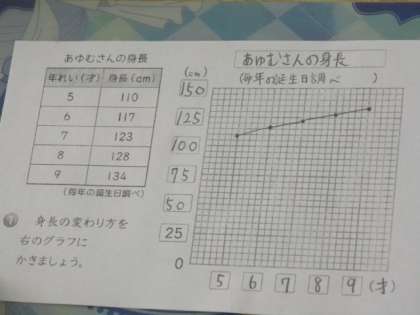 あゆむさんの身長
年れい(才) 身長(cm)
5 110
6 117
7 123
8 128
9 134
(毎年の誕生日調べ)
1 身長の変わり方を
右のグラフに
かきましょう。
あゆむさんの身長
(毎年の誕生日調べ )
(cm)
150
125
100
75
50
25
0
5 6 7 8 9 (才)